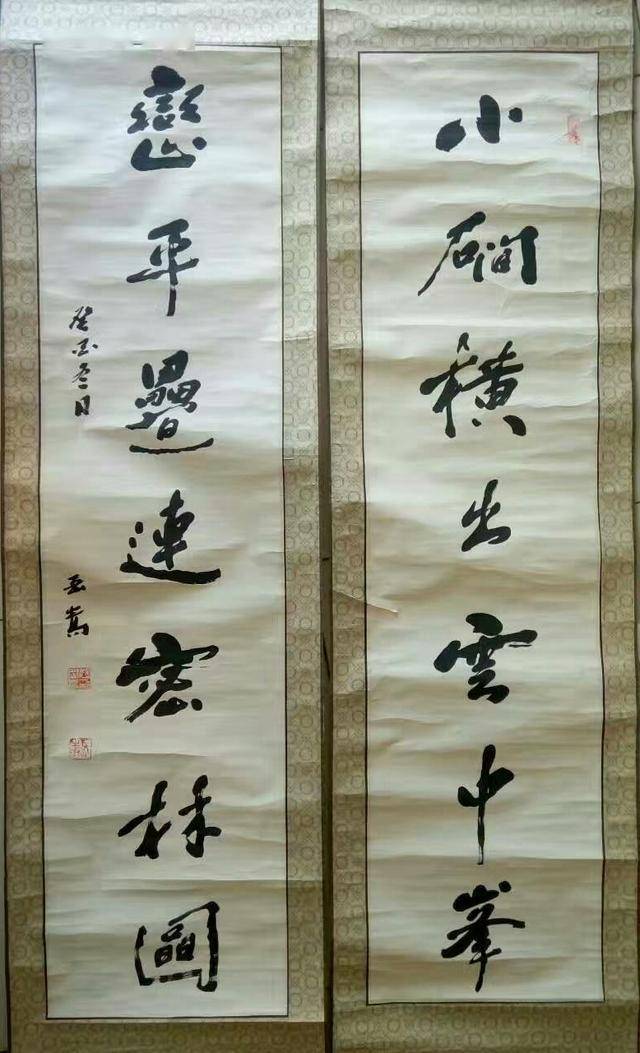 小磵橫出雲中峯
巒平疊連密林圖
癸酉冬日
嵩